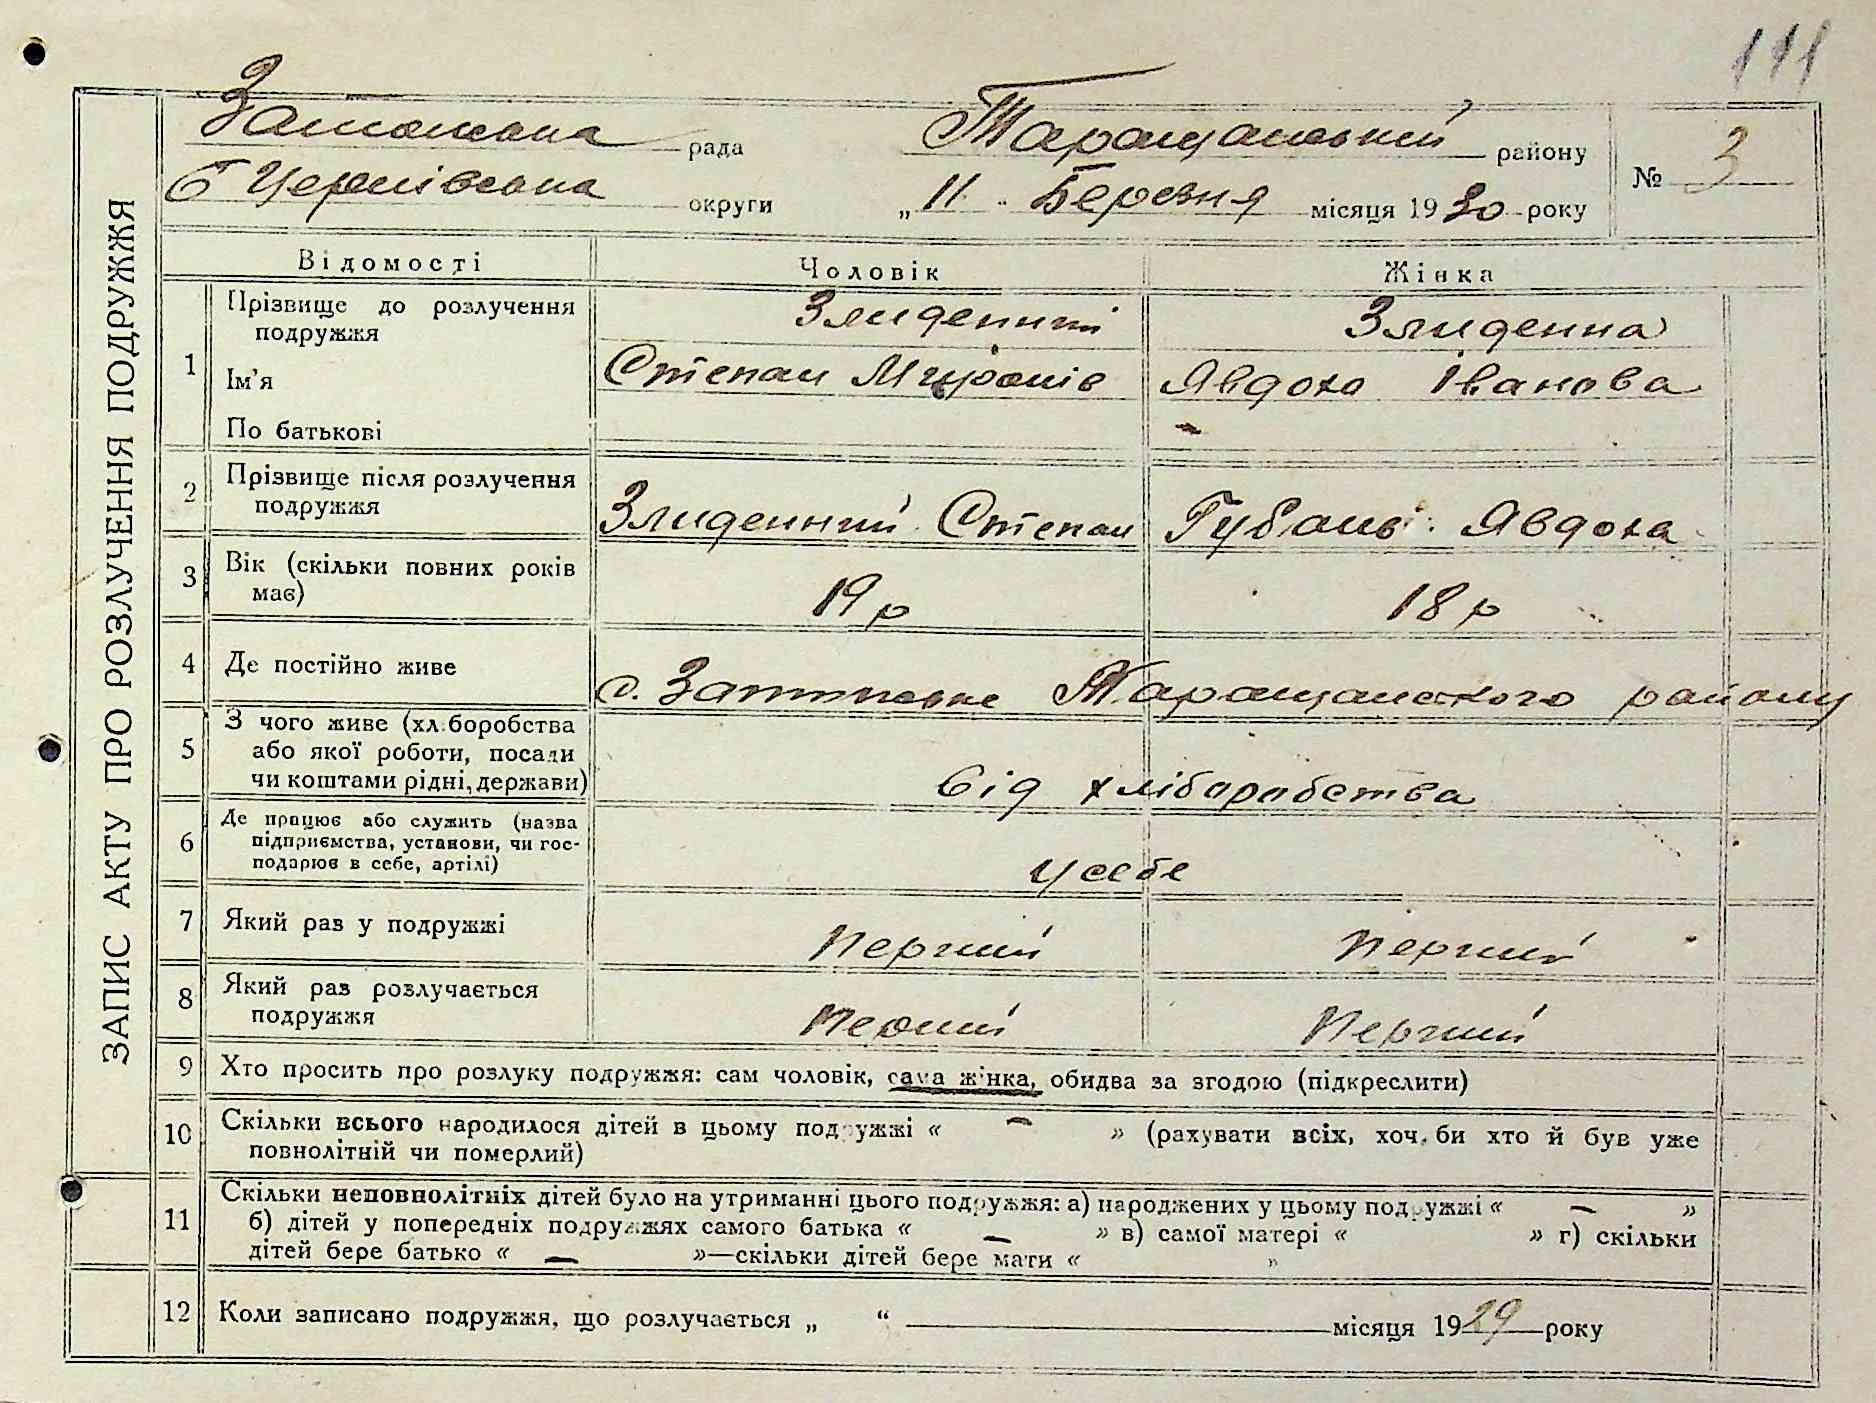 111
рада Таращанський району № 3
Б Церківська округи „ 11 " Березня місяця 1930 року
ЗАПИС АКТУ ПРО РОЗЛУЧЕННЯ ПОДРУЖЖЯ
Відомості Чоловік Жінка
1 Прізвище до розлучення Злиденний Злиденна
подружжя
Ім'я Степан Миронів Явдоха Іванова
По батькові -
2 Прізвище після розлучення
подружжя Злиденний Степан Губань Явдоха
3 Вік (скільки повних років
має) 19 р 18 р
4 Де постійно живе с. Таращанского району
5 З чого живе (хліборобства
або якої роботи, посади
чи коштами рідні, держави) від хліборобства
6 Де працює або служить (назва
підприємства, установи, чи гос-
подарює в себе, артілі) у себе
7 Який раз у подружжі Перший Перший
8 Який раз розлучається
подружжя Перший Перший
9 Хто просить про розлуку подружжя: сам чоловік, сама жінка, обидва за згодою (підкреслити)
10 Скільки всього народилося дітей в цьому подружжі « — » (рахувати всіх, хоч би хто й був уже
повнолітній чи померлий)
11 Скільки неповнолітніх дітей було на утриманні цього подружжя: а) народжених у цьому подружжі « — »
б) дітей у попередніх подружжях самого батька « — » в) самої матері « » г) скільки
дітей бере батько « — »—скільки дітей бере мати « »
12 Коли записано подружжя, що розлучається „ “ місяця 1929 року